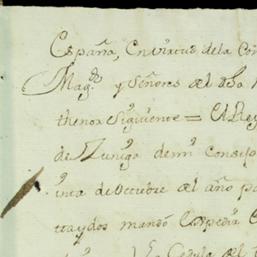 España, En virtud de la Co
Mag.^d y Señores del dho
thenor siguiente = El Rey
de Zuniga de mi Consejo
inta de Octubre del año pa
tta y dos mandó Expedir
Cedula del